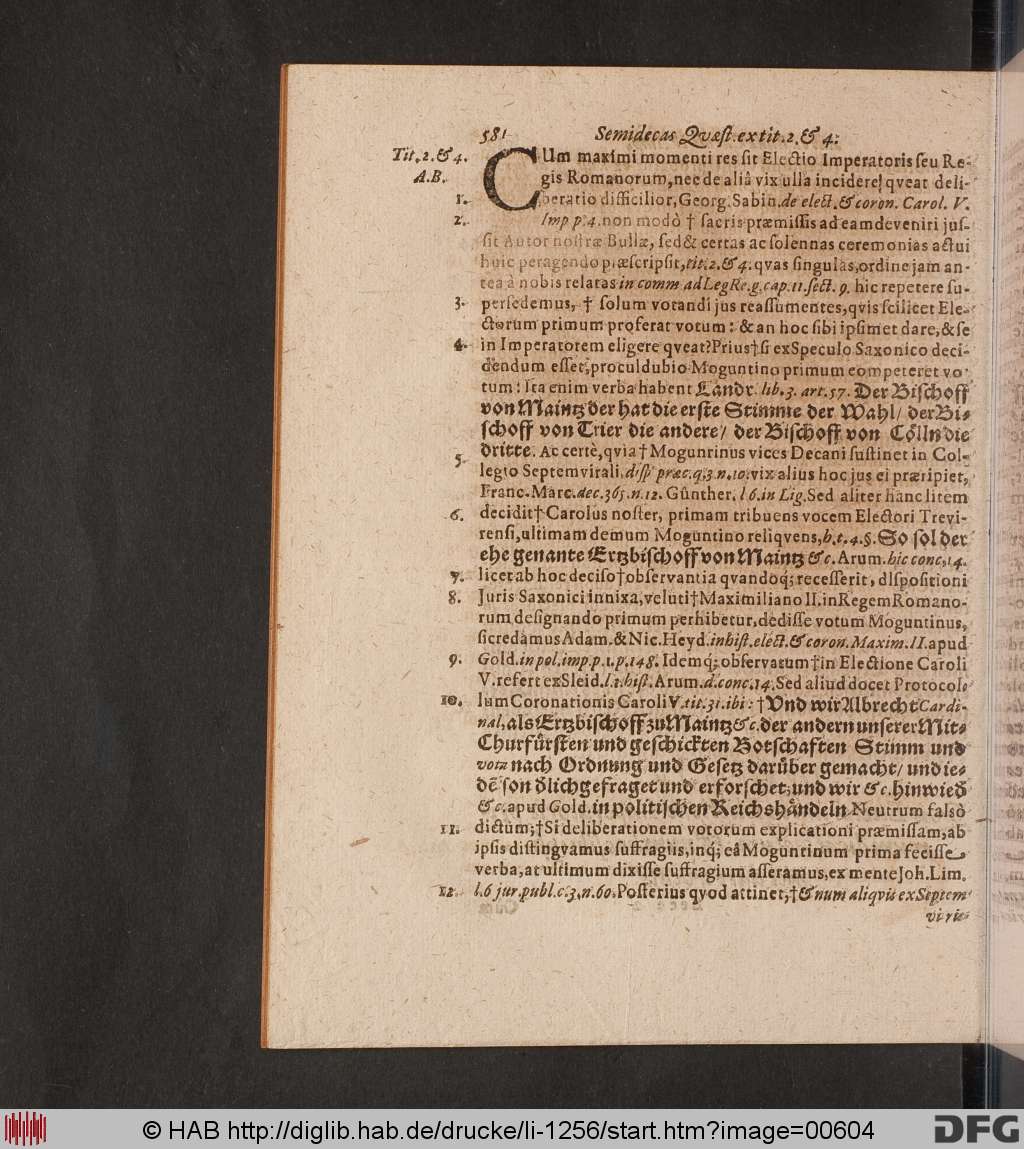 581 Semidecas Quæst. ex tit. 2. & 4.
Tit. 2. & 4.
A.B.
CUm maximi momenti res sit Electio Imperatoris seu Re-
gis Romanorum, nec de aliâ vix ulla incidere qveat deli-
1. beratio difficilior, Georg. Sabin. de elect. & coron. Carol. V.
2. Imp p. 4. non modò † sacris præmissis ad eam deveniri jus-
sit Autor nostræ Bullæ, sed & certas ac solennas ceremonias actui
huic peragendo præscripsit, tit. 2. & 4. qvas singulas, ordine jam an-
tea à nobis relatas in comm ad Leg Reg. cap. 11. sect. 9. hic repetere su-
3. persedemus, † solum votandi jus reassumentes, qvis scilicet Ele-
ctorum primum proferat votum: & an hoc sibi ipsimet dare, & se
4. in Imperatorem eligere qveat? Prius † si ex Speculo Saxonico deci-
dendum esset, proculdubio Moguntino primum competeret vo-
tum: Ita enim verba habent Landr. lib. 3. art. 57. Der Bischoff
von Maintz der hat die erste Stimme der Wahl / der Bi-
schoff von Trier die andere / der Bischoff von Cölln die
dritte. Ac certè, qvia † Moguntinus vices Decani sustinet in Col-
5. legio Septemvirali, disp præc. q. 3 n. 10. vix alius hoc jus ei præripiet,
Franc. Marc. dec. 365. n. 12. Günther. l 6. in Lig. Sed aliter hanc litem
6. decidit † Carolus noster, primam tribuens vocem Electori Trevi-
rensi, ultimam demum Moguntino reliqvens, h. t. 4. §. So sol der
ehe genante Ertzbischoff von Maintz &c. Arum. hic conc. 14.
7. licet ab hoc deciso † observantia qvandoq; recesserit, dispositioni
8. Juris Saxonici innixa, veluti † Maximiliano II. in Regem Romano-
rum designando primum perhibetur, dedisse votum Moguntinus,
si credamus Adam. & Nic. Heyd. in hist. elect. & coron. Maxim. II. apud
9. Gold. in pol. imp. p. 1. p. 148. Idemq; observatum † in Electione Caroli
V. refert ex Sleid. l. 1. hist. Arum. d. conc. 14. Sed aliud docet Protocol-
10. lum Coronationis Caroli V. tit. 31. ibi: † Und wir Albrecht Cardi-
nal, als Ertzbischoff zu Maintz &c. der andern unserer Mit-
Churfürsten und geschickten Botschaften Stimm und
vota nach Ordnung und Gesetz darüber gemacht / und ie-
dē sonđlich gefraget und erforschet, und wir &c. hinwieđ
&c. apud Gold. in politischen Reichshändeln. Neutrum falsò
11. dictum; † Si deliberationem votorum explicationi præmissam, ab
ipsis distingvamus suffragiis, inq; eâ Moguntinum prima fecisse
verba, at ultimum dixisse suffragium asseramus, ex mente Joh. Lim.
12. l. 6 jur. publ. c. 3. n. 60. Posterius qvod attinet, † & num aliqvis ex Septem
vi-ris
© HAB http://diglib.hab.de/drucke/li-1256/start.htm?image=00604
DFG